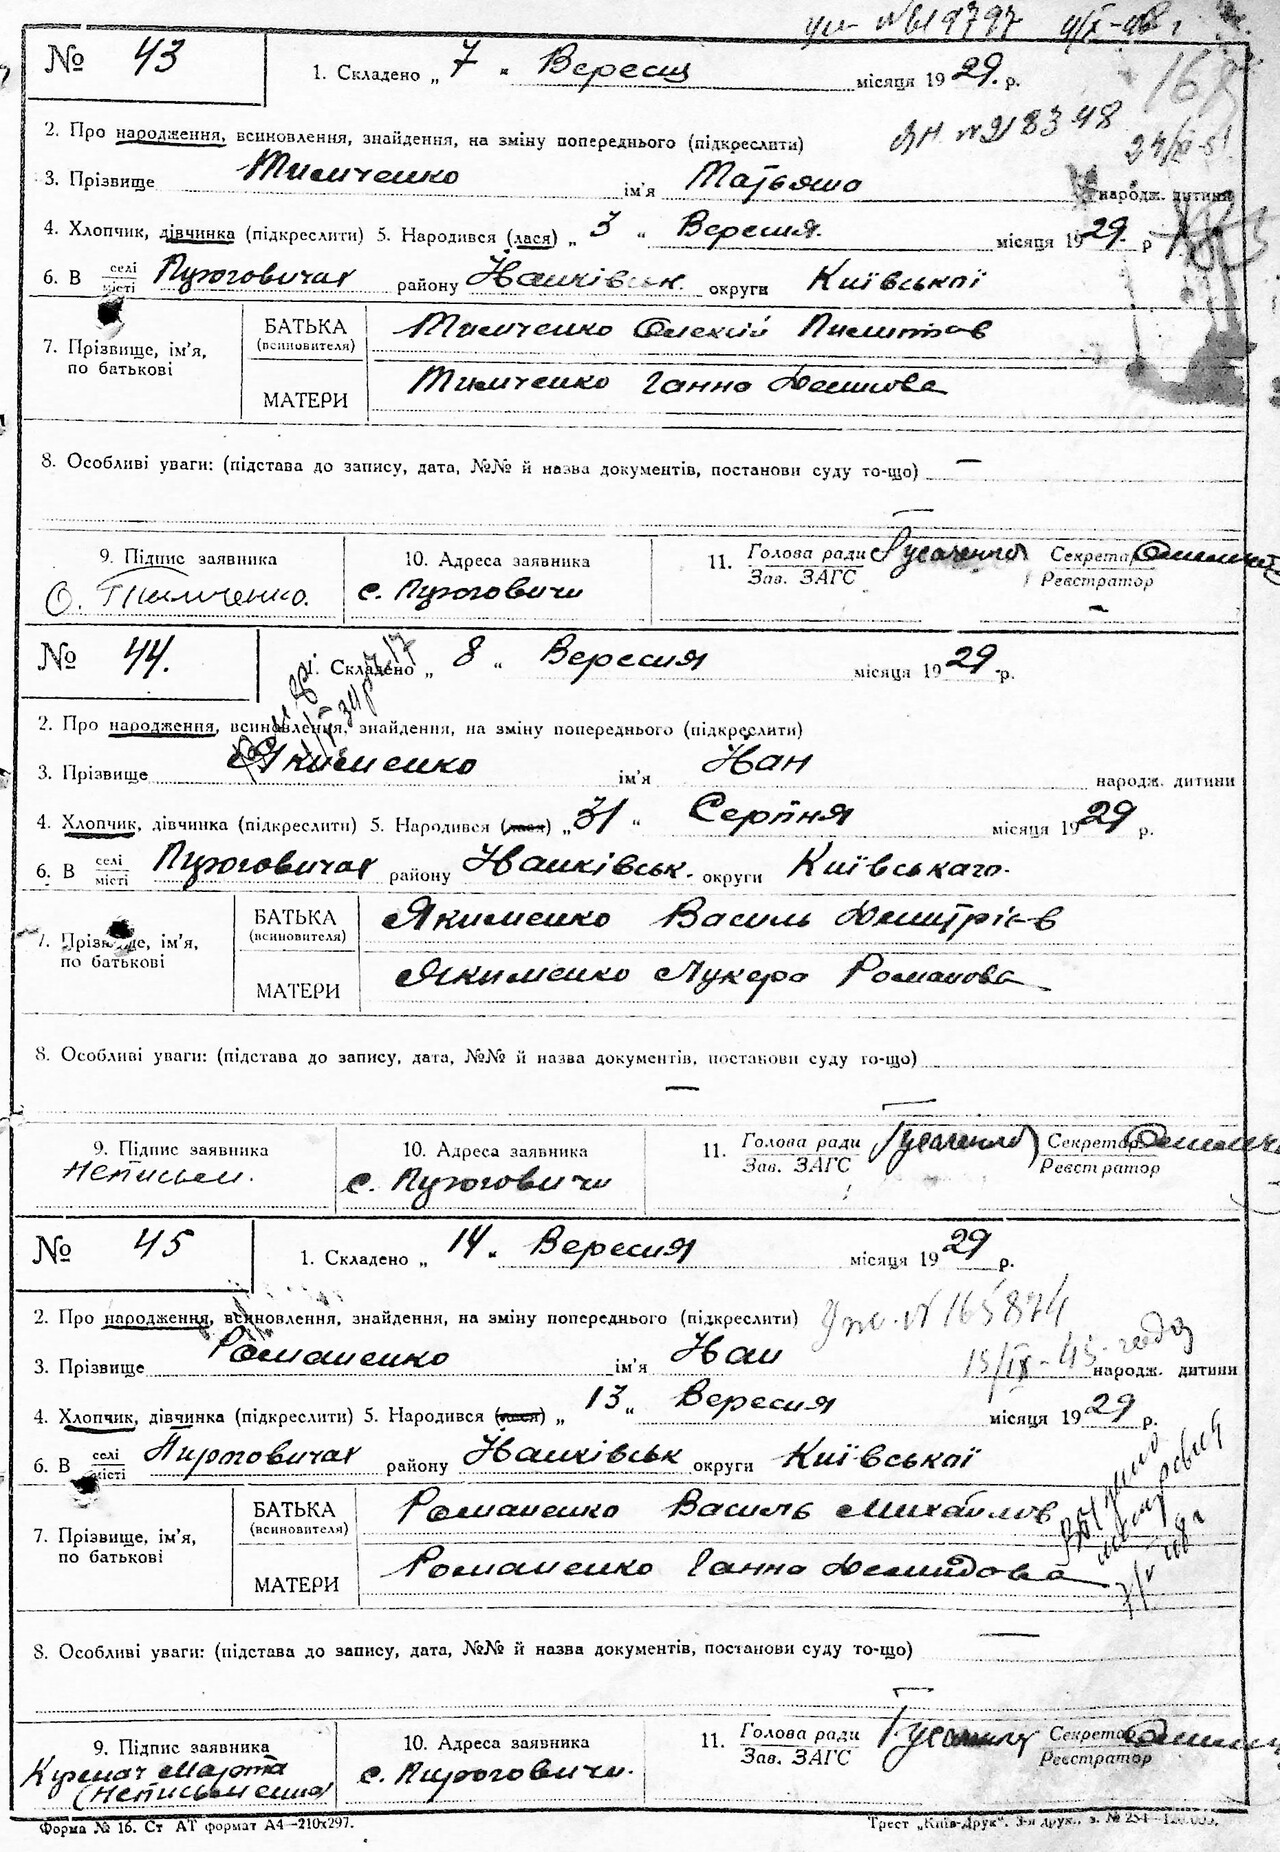 № 43
1. Складено „ 7 " Вересня місяця 1929. р.
2. Про народження, всиновлення, знайдення, на зміну попереднього (підкреслити)
3. Прізвище Тимченко ім'я Татьяна народж. дитини
4. Хлопчик, дівчинка (підкреслити) 5. Народився (лася) „ 3 " Вересня місяця 1929. р
6. В селі місті Пироговичах району Іванківськ. округи Київської
7. Прізвище, ім'я, по батькові
БАТЬКА (всиновителя) Тимченко Олексій
МАТЕРИ Тимченко Ганна
8. Особливі уваги: (підстава до запису, дата, №№ й назва документів, постанови суду то-що) —
9. Підпис заявника
О. Тимченко.
10. Адреса заявника
с. Пироговичи
11. Голова ради Зав. ЗАГС
Секретар Реєстратор
№ 44.
1. Складено „ 8 " Вересня місяця 1929 р.
2. Про народження, всиновлення, знайдення, на зміну попереднього (підкреслити)
3. Прізвище Якименко ім'я Іван народж. дитини
4. Хлопчик, дівчинка (підкреслити) 5. Народився (лася) „ 31 " Серпня місяця 1929 р.
6. В селі місті Пироговичах району Іванківськ. округи Київськаго.
7. Прізвище, ім'я, по батькові
БАТЬКА (всиновителя) Якименко Василь Дмитрієв
МАТЕРИ Якименко Лукера Романова
8. Особливі уваги: (підстава до запису, дата, №№ й назва документів, постанови суду то-що)
—
9. Підпис заявника
Неписьм.
10. Адреса заявника
с. Пироговичи
11. Голова ради Зав. ЗАГС
Секретар Реєстратор
№ 45
1. Складено „ 14 " Вересня місяця 1929 р.
2. Про народження, всиновлення, знайдення, на зміну попереднього (підкреслити) № 165874
3. Прізвище Романенко ім'я Іван 15/IX-45 народж. дитини
4. Хлопчик, дівчинка (підкреслити) 5. Народився (лася) „ 13 " Вересня місяця 1929 р.
6. В селі місті Пироговичах району Іванківськ округи Київської
7. Прізвище, ім'я, по батькові
БАТЬКА (всиновителя) Романенко Василь Михайлов
МАТЕРИ Романенко Ганна Демидова
8. Особливі уваги: (підстава до запису, дата, №№ й назва документів, постанови суду то-що) —
9. Підпис заявника
Марта
(Неписьменна)
10. Адреса заявника
с. Пироговичи.
11. Голова ради Зав. ЗАГС
Секретар Реєстратор
Форма № 16. Ст АТ формат А4—210х297.
Трест „Київ-Друк". 3-я друк.